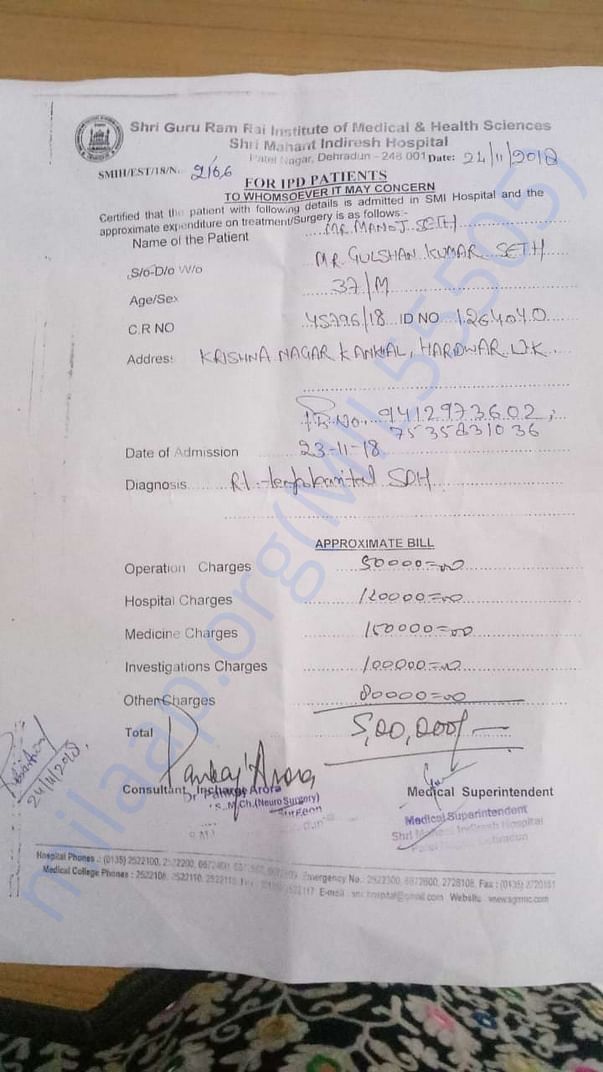 Shri Guru Ram Rai Institute of Medical & Health Sciences
Shri Mahant Indiresh Hospital
Patel Nagar, Dehradun - 248 001 Date: 24/11/2018
SMIH/EST/18/N. 2166
FOR IPD PATIENTS
TO WHOMSOEVER IT MAY CONCERN
Certified that the patient with following details is admitted in SMI Hospital and the
approximate expenditure on treatment/Surgery is as follows:-
Name of the Patient MR. MANOJ SETH
S/o-D/o W/o MR. GULSHAN KUMAR SETH
Age/Sex 37/M
C.R NO 45796/18 ID NO 1264040
Address KRISHNA NAGAR KANKHAL, HARDWAR U.K.
9412973602,
7535831036
Date of Admission 23-11-18
Diagnosis Rt. SDH
APPROXIMATE BILL
Operation Charges 50000=00
Hospital Charges 120000=00
Medicine Charges 150000=00
Investigations Charges 100000=00
Other Charges 80000=00
Total 5,00,000/-
Pankaj Arora
24/11/2018
Consultant Incharge Medical Superintendent
Dr Pankaj Arora
M.Ch.(Neuro Surgery)
Surgeon
Medical Superintendent
Shri Mahant Indiresh Hospital
Dehradun
Hospital Phones : (0135) 2522100, Emergency No.: 2522300, 6672600, 2728106, Fax : (0135) 2720151
Medical College Phones : 2522108, E-mail : Website : www.sgrrmc.com
milaap.org(MIL55505)